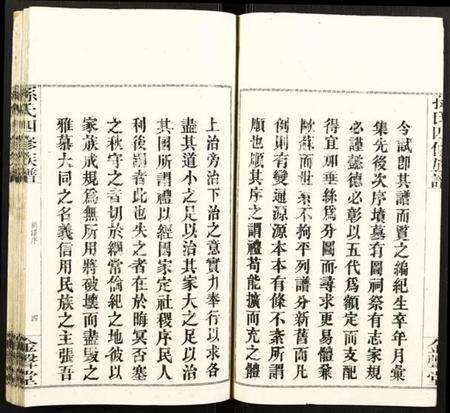 孫氏四修族譜
金聲堂
今試卽其譜而質之編紀生卒年月彙
集先後次序墳墓有圖祠祭有志家規
必謹懿德必彰以五代爲額定而支配
得宜如垂絲爲分圖而尋求更易體兼
歐蘇而世系不拘平列譜分新舊而凡
例則有變通源源本本有條不紊所謂
順也順其序之謂禮苟能擴而充之體
上治旁治下治之意實力奉行以求各
盡其道小之足以治其家大之足以治
其國所謂禮以經國家定社稷序民人
利後嗣者此也失之者在於晦冥否塞
之秋守之者切於綱常倫紀之地彼以
家族成規爲無所用將破壞而盡裂之
雅慕大同之名義信用民族之主張吾
孫氏四修族譜
序
四
金聲堂